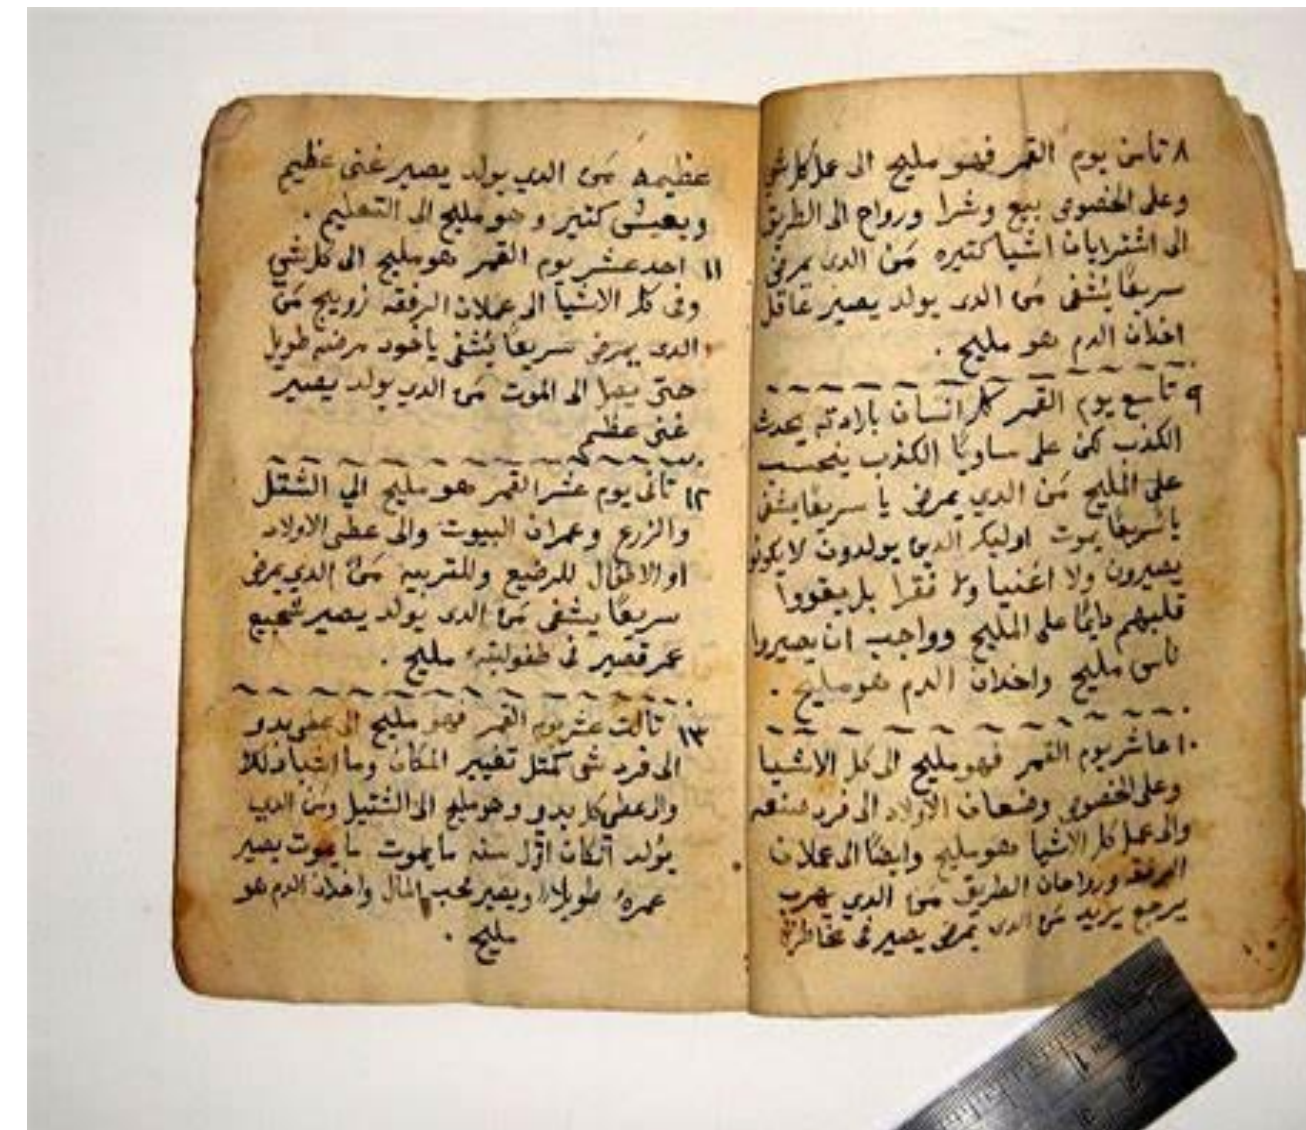 ٨ تامن يوم القمر فهو مليح الى عمل كل شي
وعلى الخصوص بيع وشرا ورواح الى الطريق
الى اشترايات اشيا كتيره مَن الدي يمرض
سريعًا يُشفى مَن الدي يولد يصير عاقل
اخدان الدم هو مليح .
٩ تاسع يوم القمر كل انسان بارادته يحدث
الكذب كمن على ساويًا الكذب ينحسب
على المليح مَن الدي يمرض يا سريعًا يشفى
يا سريعًا يموت اوليك الدين يولدون لا يكونو
يصيرون ولا اغنيا ولا فقرا بل يقووا
قلبهم دايمًا على المليح وواجب ان يصيروا
ناس مليح واخدان الدم هو مليح .
١٠ عاشر يوم القمر فهو مليح الى كل الاشيا
وعلى الخصوص وضعان الاولاد الى فرد صنعه
والى عمل كل الاشيا هو مليح وايضًا الى عملان
الرفقه ورواحان الطريق مَن الدي يهرب
يرجع يريد مَن الدي يمرض يصير في مخاطره
عظيمه مَن الدي يولد يصير غنى عظيم
ويعيش كتير وهو مليح الى التعليم .
١١ احد عشر يوم القمر هو مليح الى كل شي
وفى كل الاشيا الى عملان الرفقه زويج مَن
الدي يمرض سريعًا يُشفى ياخود مرضه طويل
حتى يصل الى الموت مَن الدي يولد يصير
غنى عظيم
١٢ تانى يوم عشر القمر هو مليح الي الشتل
والزرع وعمران البيوت والى عطى الاولاد
او الاطفال للرضيع وللتربيه مَن الدي يمرض
سريعًا يشفى مَن الدي يولد يصير شجيع
عمر قصير في طفوليته مليح .
١٣ تالت عشر يوم القمر فهو مليح الى عطى بدو
الى فرد شى كمتل تغيير المكان وما اشبه دلك
والى عطى كل بدو وهو مليح الى الشتيل ومَن الدي
يولد انكان اوّل سنه ما يموت ما يموت يصير
عمره طويلا ويصير محب المال واخدان الدم هو
مليح .